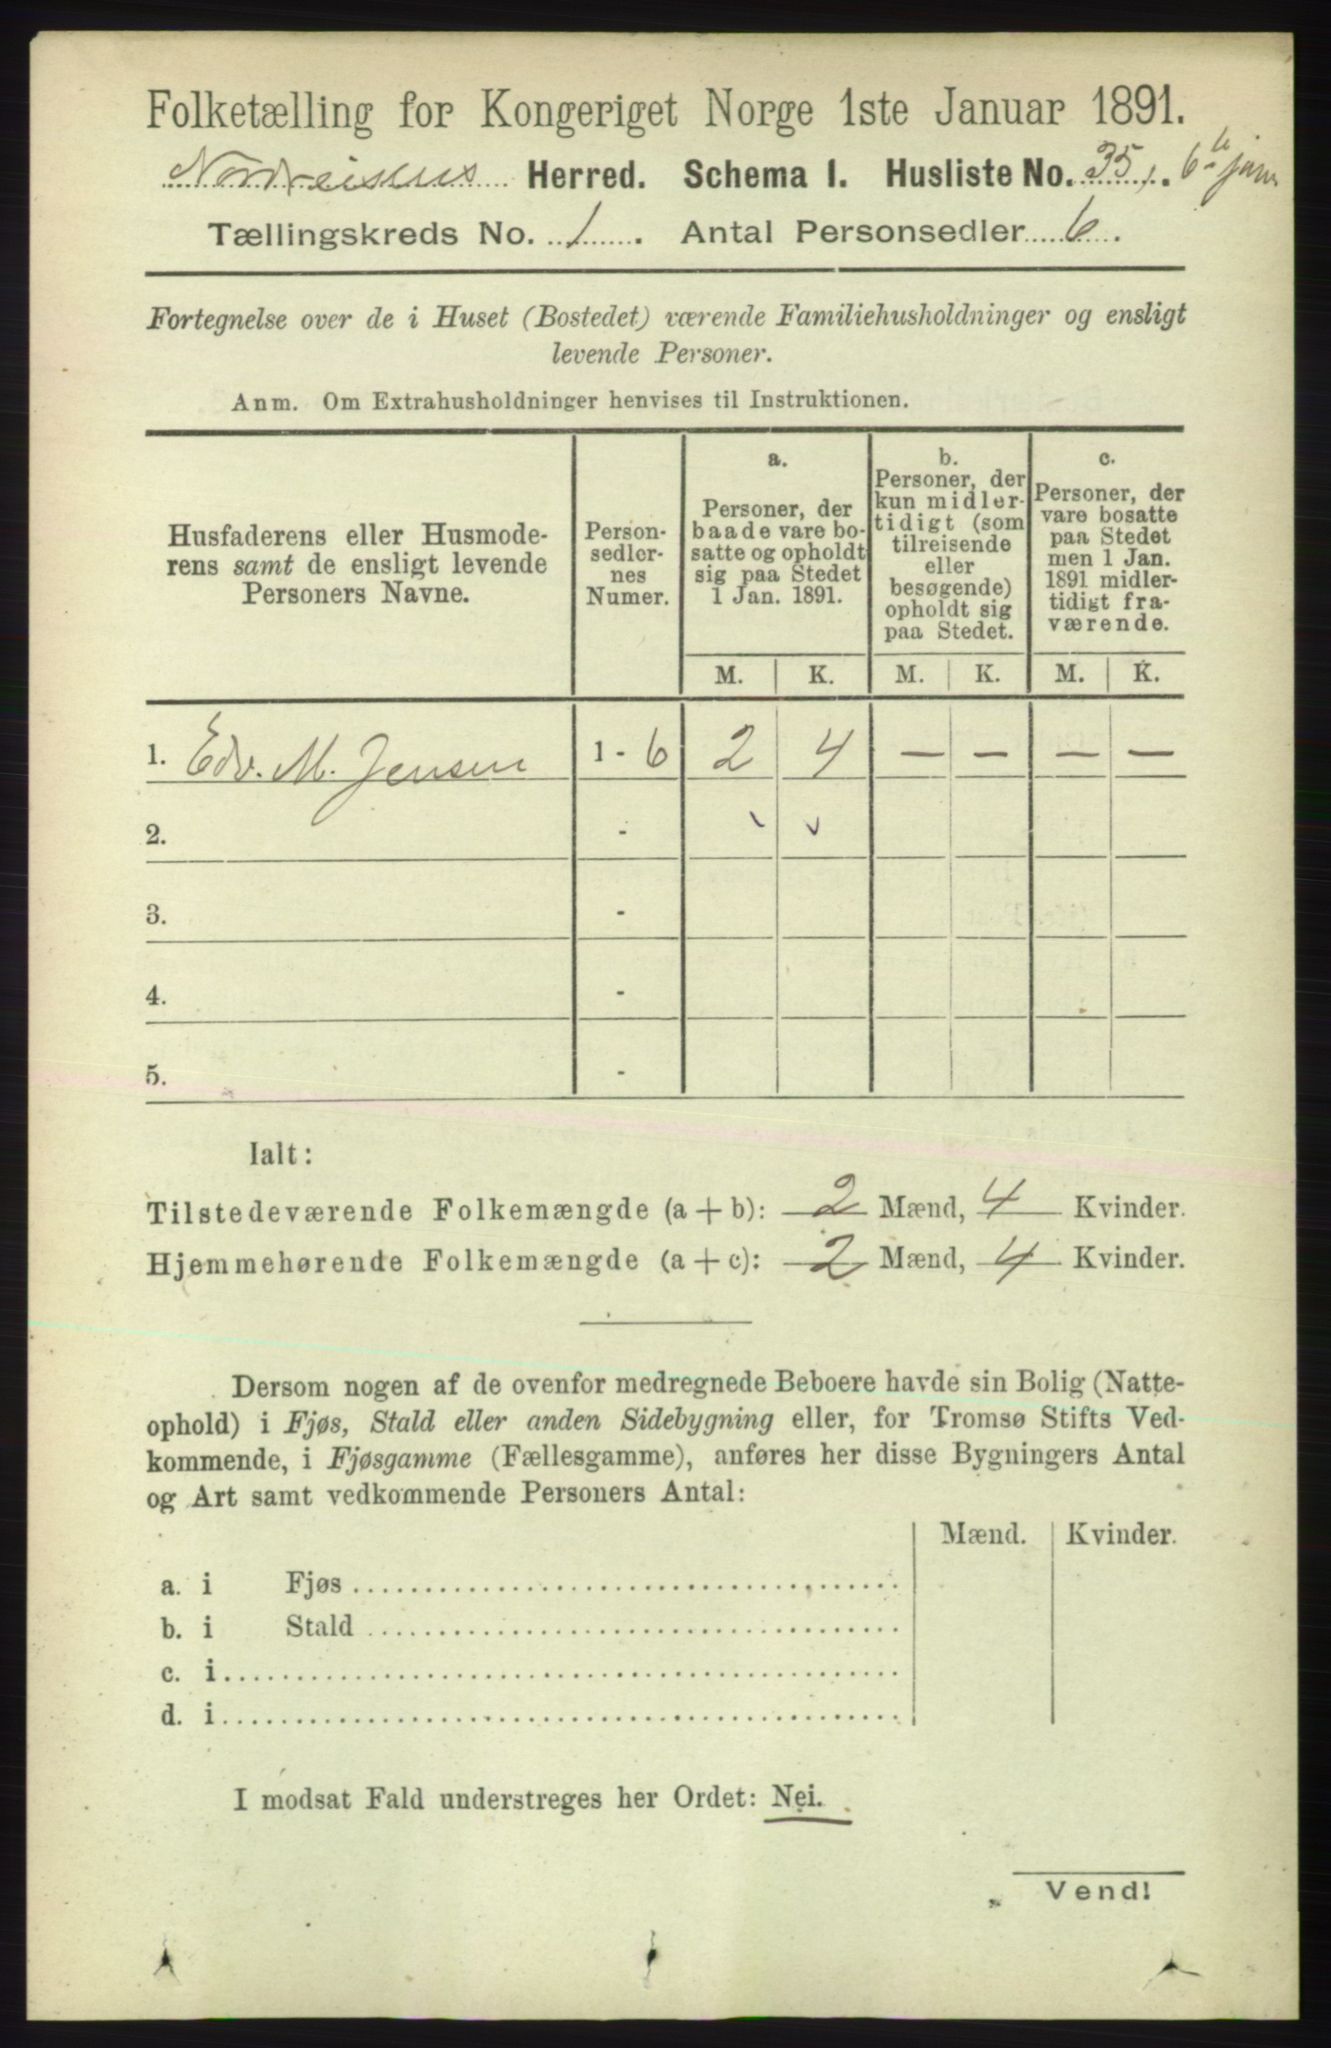 Folketælling for Kongeriget Norge 1ste Januar 1891.
Nordreisens Herred. Schema I. Husliste No. 35. 6te janu
Tællingskreds No. 1. Antal Personsedler 6.
Fortegnelse over de i Huset (Bostedet) værende Familiehusholdninger og ensligt
levende Personer.
Anm. Om Extrahusholdninger henvises til Instruktionen.
Husfaderens eller Husmode-
rens samt de ensligt levende
Personers Navne.
Person-
sedler-
nes
Numer.
a.
Personer, der
baade vare bo-
satte og opholdt
sig paa Stedet
1 Jan. 1891.
b.
Personer, der
kun midler-
tidigt (som
tilreisende
eller
besøgende)
opholdt sig
paa Stedet.
c.
Personer, der
vare bosatte
paa Stedet
men 1 Jan.
1891 midler-
tidigt fra-
værende.
M. K. M. K. M. K.
1. Edv. M. Jensen 1 - 6 2 4 — — — —
2. -
3. -
4. -
5. -
Ialt:
Tilstedeværende Folkemængde (a + b): 2 Mænd, 4 Kvinder.
Hjemmehørende Folkemængde (a + c): 2 Mænd, 4 Kvinder.
Dersom nogen af de ovenfor medregnede Beboere havde sin Bolig (Natte-
ophold) i Fjøs, Stald eller anden Sidebygning eller, for Tromsø Stifts Ved-
kommende, i Fjøsgamme (Fællesgamme), anføres her disse Bygningers Antal
og Art samt vedkommende Personers Antal:
Mænd. Kvinder.
a. i Fjøs
b. i Stald
c. i
d. i
I modsat Fald understreges her Ordet: Nei.
Vend!